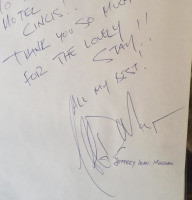 MOTEL
CINCIS!!
THANK YOU SO MUCH
FOR THE LOVELY
STAY!!
ALL MY BEST.
JEFFREY DEAN MORGAN